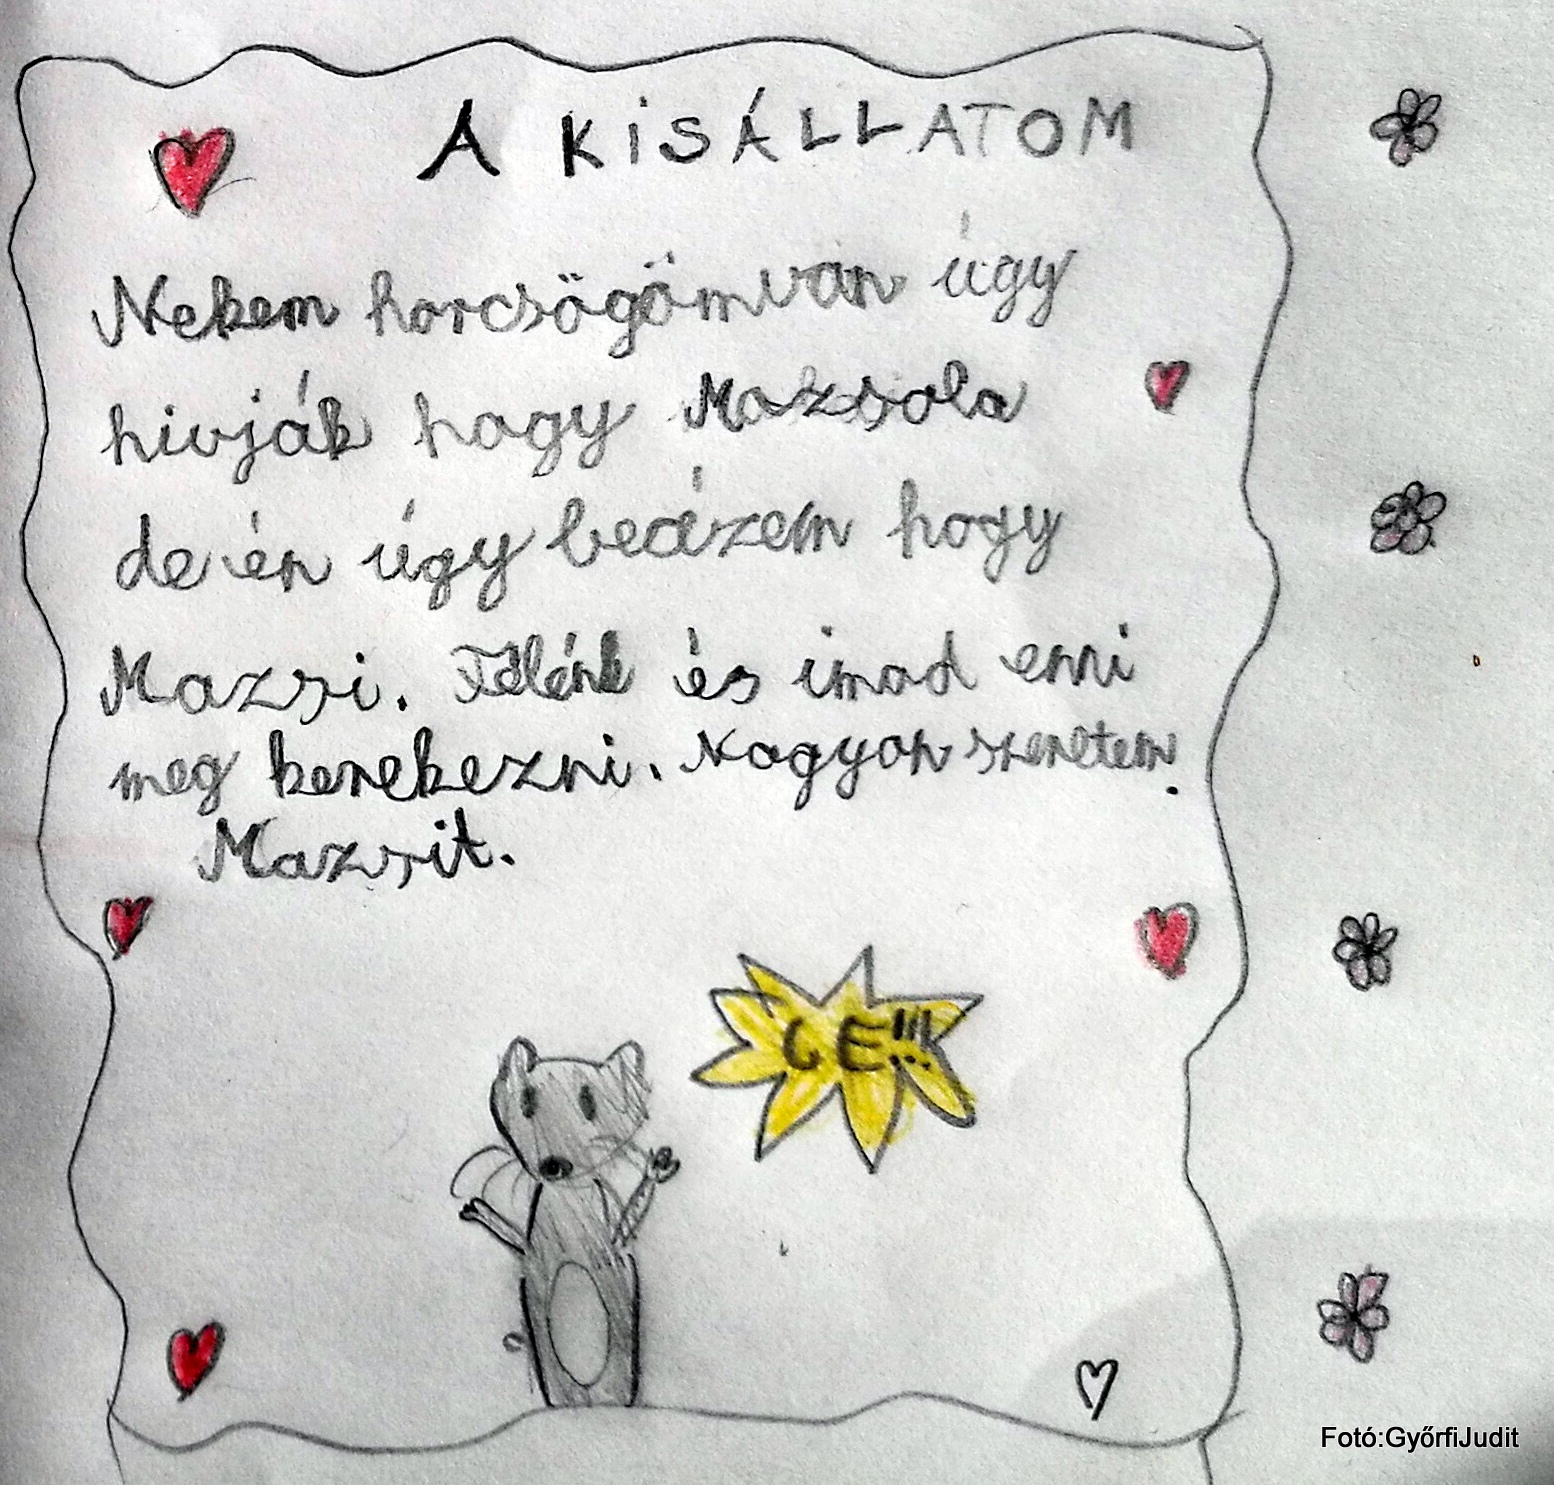 A KISÁLLATOM
Nekem horcsögöm van úgy
hivják hogy Mazsola
de én úgy becézem hogy
Mazsi. Félénk és imád enni
meg kerekezni. Nagyon szeretem.
Mazsit.
CE!!!
Fotó:GyőrfiJudit